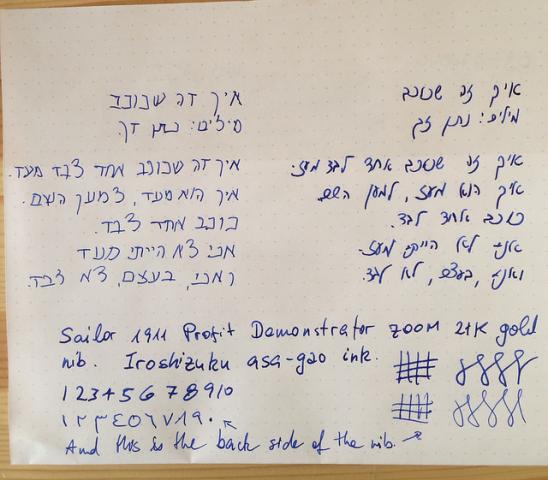 איך זה שכוכב
מילים: נתן זך
איך זה שכוכב אחד לבד מעז.
איך הוא מעז, למען השם.
כוכב אחד לבד.
אני לא הייתי מעז.
ואני, בעצם, לא לבד.
איך זה שכוכב
מילים: נתן זך.
איך זה שכוכב אחד לבד מעז.
איך הוא מעז, למען השם.
כוכב אחד לבד.
אני לא הייתי מעז
ואני, בעצם, לא לבד.
Sailor 1911 Profit Demonstrator zoom 21K gold
nib. Iroshizuku asa-gao ink.
1 2 3 4 5 6 7 8 9 10
١ ٢ ٣ ٤ ٥ ٦ ٧ ٨ ٩ ٠
And this is the back side of the nib.